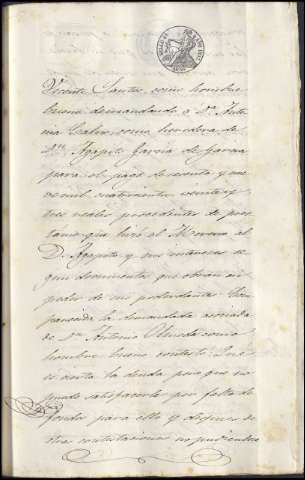 Vicente Santos como hombre
bueno demandando a Dª Anto
nia Calvo como heredera de
Dn Agapito Garcia de Garcia
para el pago de sesenta y nue
ve mil cuatrocientos sesenta y
tres reales procedentes de pres
tamo que hizo el Moreno al
D. Agapito y sus intereses se
gun documentos que obran en
poder de su poderdante. Com
pareciendo la demandada asociada
de Dn Antonio Olmeda como
hombre bueno contestó: Que
es cierta la deuda pero que no
puede satisfacerla por falta de
fondos para ello y despues de
otras contestaciones no pudiendose